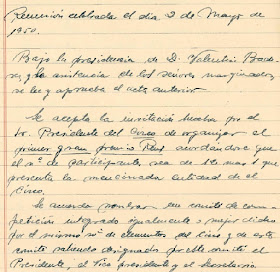 Reunión celebrada el día 2 de Mayo de
1950.
Bajo la presidencia de D. Valentín
y la asistencia de los señores marginados
se lee y aprueba el acta anterior
Se acepta la invitación hecha por el
Sr. Presidente del Circo de organizar el
primer gran premio Reus acordándose que
el nº de participantes sea de 12 mas 8 que
presenta la mencionada entidad de el
Circo.
Se acuerda nombrar un comité de com-
petición integrado igualmente o mejor dicho
por el mismo nº de elementos del Circo y de este
comité saliendo designados por el
Presidente, el Vice presidente y el Secretario